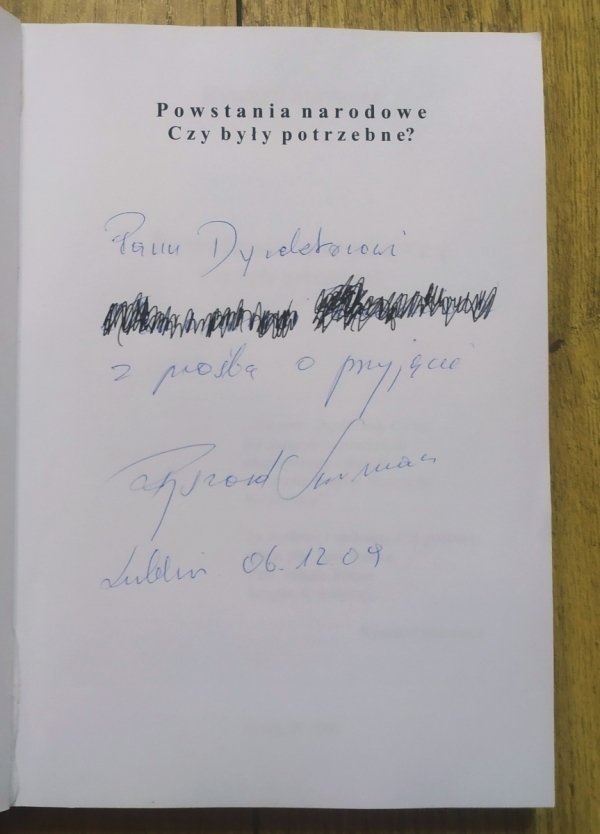 Powstania narodowe
Czy były potrzebne?
Panu Dyrektorowi
z prośbą o przyjęcie
Ryszard
Lublin 06.12.09